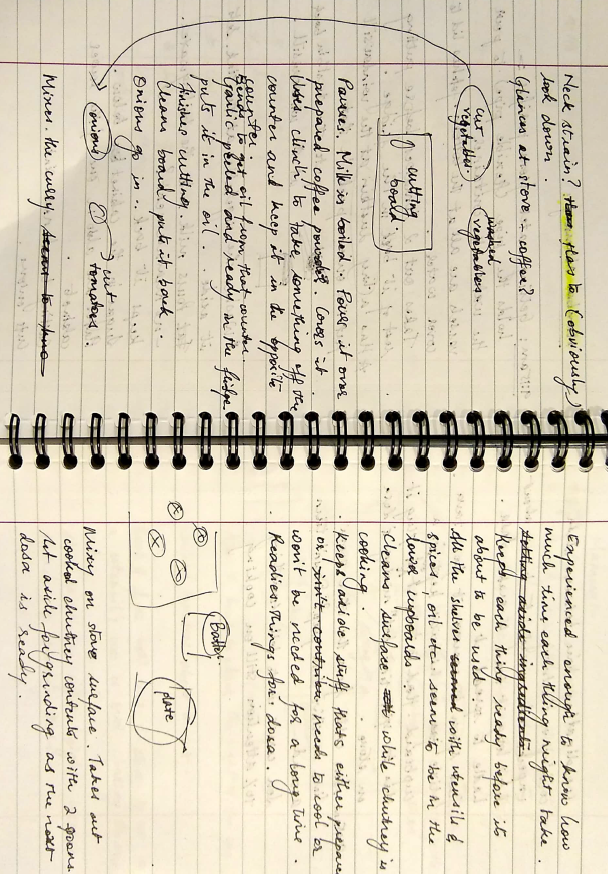 Neck strain? Has to (obviously)
look down.
Glances at stove - coffee?
cut
vegetables.
washed
vegetables.
cutting
board.
Pauses. Milk is boiled. Pours it over
prepared coffee powder. Covers it.
Uses cloth to take something off the
counter and keep it in the opposite
counter.
Bends to get oil from that counter.
Garlic peeled and ready in the fridge
puts it in the oil.
finishes cutting.
Cleans board, puts it back..
Onions go in...
onions
cut
tomatoes.
Mixes the curry. seems to
Experienced enough to know how
much time each thing might take.
taking aside ingredients
Keeps each thing ready before its
about to be used.
All the shelves with utensils &
spices, oil etc seem to be in the
lower cupboards.
Cleans surface while chutney is
cooking.
Keeps aside stuff thats either prepared
or isn't needs to cool or
won't be needed for a long time.
Readies things for dosa.
Batter
Mixy on stove surface. Takes out
cooked chutney contents with 2 spoons.
Set aside for grinding as the next
dosa is ready.